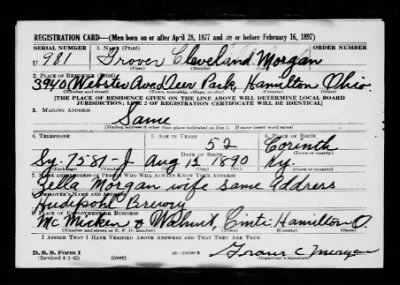 REGISTRATION CARD—(Men born on or after April 28, 1877 and on or before February 16, 1897)
SERIAL NUMBER 1. NAME (Print) ORDER NUMBER
U 981 Grover Cleveland Morgan
(First) (Middle) (Last)
2. PLACE OF RESIDENCE (Print)
3940 Webster Ave Deer Park, Hamilton Ohio
(Number and street) (Town, township, village, or city) (County) (State)
[THE PLACE OF RESIDENCE GIVEN ON THE LINE ABOVE WILL DETERMINE LOCAL BOARD
JURISDICTION; LINE 2 OF REGISTRATION CERTIFICATE WILL BE IDENTICAL]
3. MAILING ADDRESS
Same
[Mailing address if other than place indicated on line 2. If same insert word same]
4. TELEPHONE 5. AGE IN YEARS 6. PLACE OF BIRTH
52 Corinth
DATE OF BIRTH
Sy. 7581-J Aug 15 1890 Ky.
7. NAME AND ADDRESS OF PERSON WHO WILL ALWAYS KNOW YOUR ADDRESS
Zella Morgan wife same Address
8. EMPLOYER'S NAME AND ADDRESS
Hudepohl Brewry
9. PLACE OF EMPLOYMENT OR BUSINESS
Mc Micken & Walnut Cinti Hamilton O.
(Number and street or R. F. D. number) (Town) (County) (State)
I AFFIRM THAT I HAVE VERIFIED ABOVE ANSWERS AND THAT THEY ARE TRUE.
D. S. S. Form 1
(Revised 4-1-42) (over)
Grover C Morgan